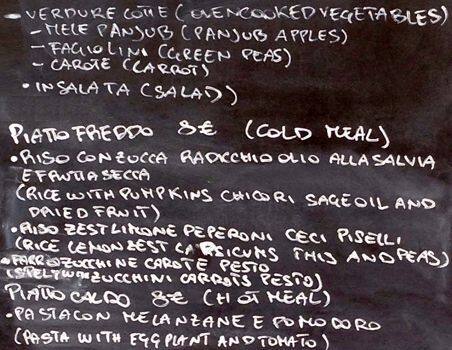 - VERDURE COTTE (OVENCOOKED VEGETABLES)
- MELE PANJUB (PANJUB APPLES)
- FAGIOLINI (GREEN PEAS)
- CAROTE (CARROT)
• INSALATA (SALAD)
PIATTO FREDDO 8€ (COLD MEAL)
• RISO CON ZUCCA RADICCHIO OLIO ALLA SALVIA
E FRUTTA SECCA
(RICE WITH PUMPKINS CHICORI SAGE OIL AND
DRIED FRUIT)
• RISO ZEST LIMONE PEPERONI CECI PISELLI
(RICE LEMON ZEST CAPSICUMS THIS AND PEAS)
• FARRO ZUCCHINE CAROTE PESTO
(SPELT WITH ZUCCHINI CARROTS PESTO)
PIATTO CALDO 8€ (HOT MEAL)
• PASTA CON MELANZANE E POMODORO
(PASTA WITH EGGPLANT AND TOMATO)